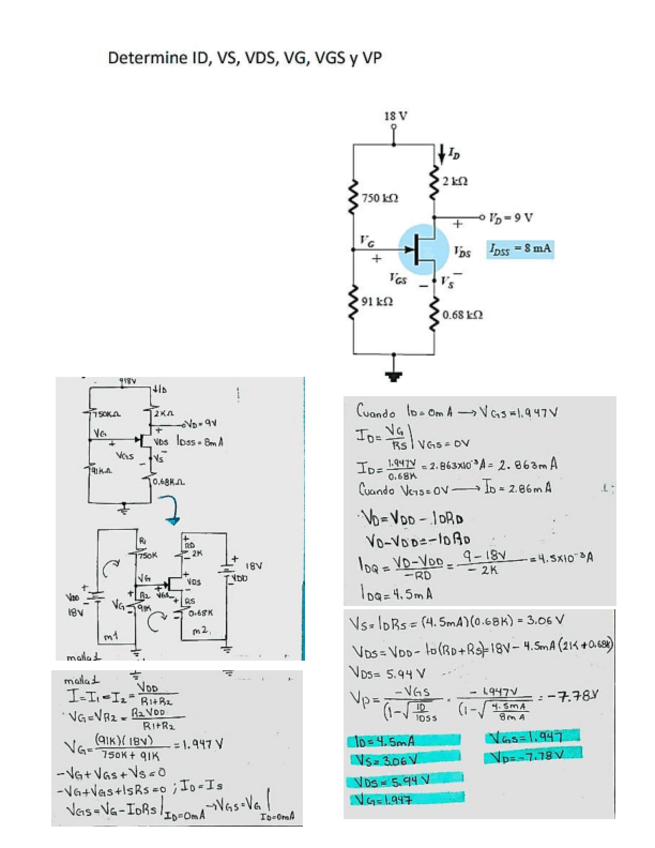 Determine ID, VS, VDS, VG, VGS y VP
18 V
I_D
2 kΩ
750 kΩ
V_D = 9 V
+
V_G
+
V_DS
I_DSS = 8 mA
V_GS
−
−
V_S
91 kΩ
0.68 kΩ
918V
↓ID
750KΩ
2KΩ
VD=9V
VG
+
+
VDS IDSS=8mA
VGS
-
VS
91KΩ
0.68KΩ
R1
750K
RD
2K
+
18V
VDD
VG
VDS
VDD
18V
+
R2
VGS
VG
91K
RS
0.68K
m1
m2
malla 1
malla 1
I=I1=I2= VDD / R1+R2
VG=VR2= R2VDD / R1+R2
VG= (91K)(18V) / 750K+91K =1.947V
-VG+VGS+VS=0
-VG+VGS+ISRS=0 ; ID=IS
VGS=VG-IDRS | ID=0mA → VGS=VG | ID=0mA
Cuando ID=0mA → VGS=1.947V
ID= VG / RS | VGS=0V
ID= 1.947V / 0.68K = 2.863X10⁻³A= 2.863mA
Cuando VGS=0V → ID=2.86mA
VD=VDD-IDRD
VD-VDD=-IDRD
IDQ= VD-VDD / -RD = 9-18V / -2K =4.5X10⁻³A
IDQ=4.5mA
VS=IDRS= (4.5mA)(0.68K) = 3.06V
VDS=VDD- ID(RD+RS)=18V-4.5mA(21K+0.68K)
VDS= 5.94V
Vp= -VGS / (1-√ID/IDSS = -1.947V / (1-√4.5mA/8mA = -7.78V
ID=4.5mA
VGS=1.947
VS=3.06V
VP=-7.78V
VDS=5.94V
VG=1.947